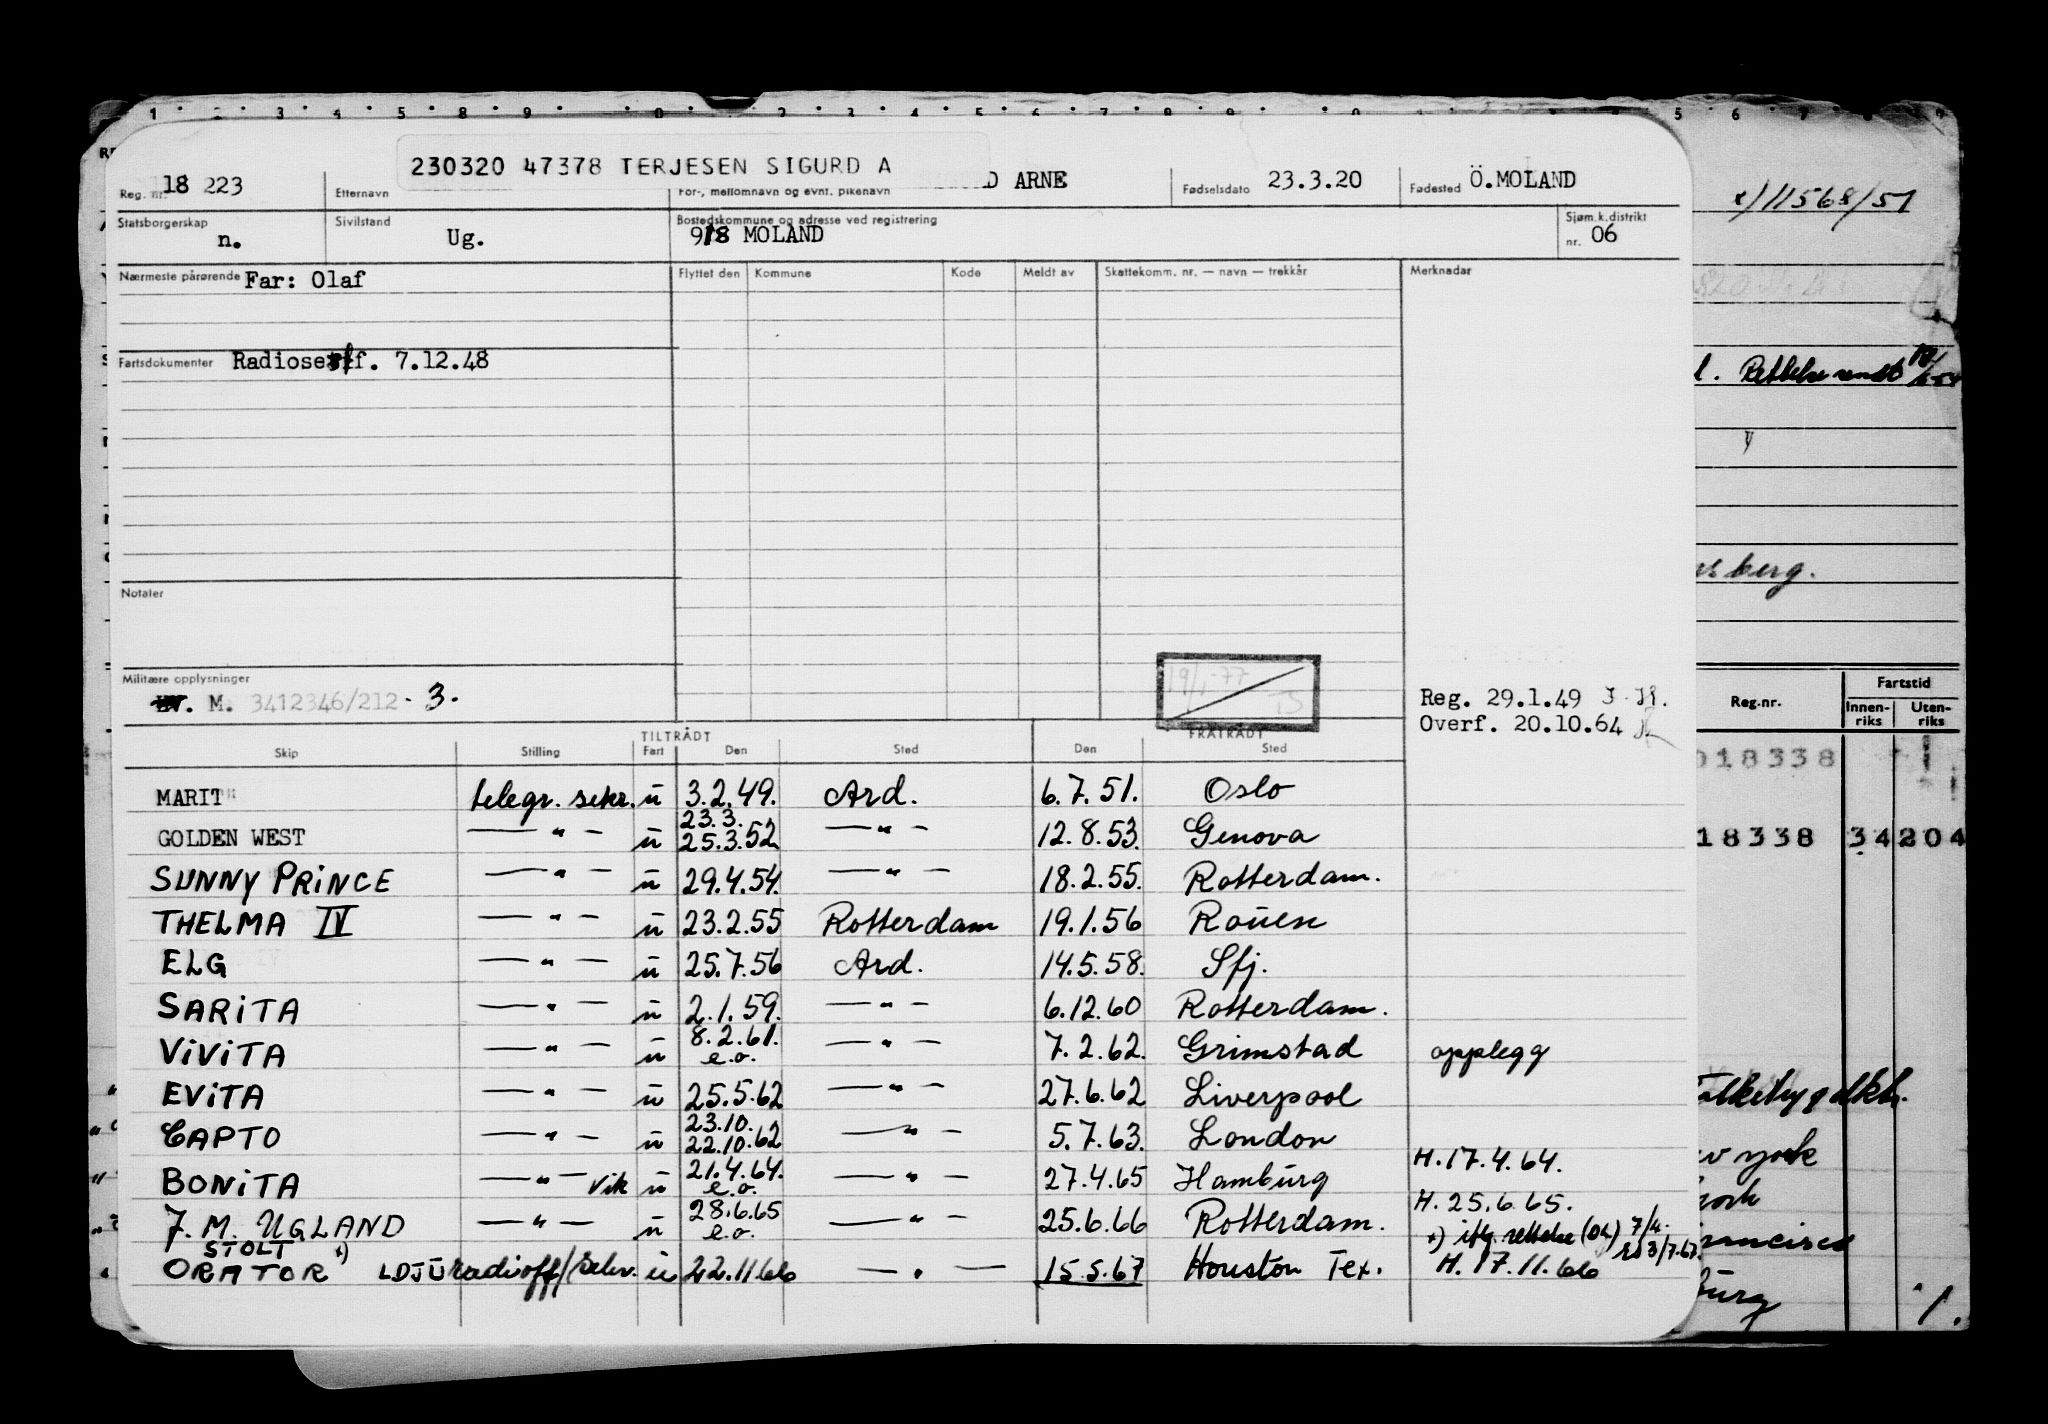 230320 47378 TERJESEN SIGURD A
Reg. nr. 18 223 Etternavn For-, mellomnavn og evnt. pikenavn ARNE Fødselsdato 23.3.20 Fødested Ö.MOLAND
x) 11568/51
Statsborgerskap n. Sivilstand Ug. Bostedskommune og adresse ved registrering 918 MOLAND Sjøm.k.distrikt nr. 06
Nærmeste pårørende Far: Olaf Flyttet den Kommune Kode Meldt av Skattekomm. nr. — navn — trekkår Merknadar
Fartsdokumenter Radiosertf. 7.12.48
Notater
Militære opplysninger
M. 3412346/212 - 3.
19/1-77
Reg. 29.1.49
Overf. 20.10.64
Reg.nr. Fartstid Innen-riks Uten-riks
TILTRÅDT FRATRÅDT
Skip Stilling Fart Den Sted Den Sted
018338
18338 34 204
MARIT telegr. sekr. u 3.2.49. Ard. 6.7.51. Oslo
GOLDEN WEST — " — u 23.3. 25.3.52 — " — 12.8.53. Genova
SUNNY PRINCE — " — u 29.4.54. — " — 18.2.55. Rotterdam.
THELMA IV — " — u 23.2.55 Rotterdam 19.1.56 Rouen
ELG — " — u 25.7.56 Ard. 14.5.58. Sfj.
SARITA — " — u 2.1.59. — " — 6.12.60 Rotterdam.
VIVITA — " — u 8.2.61. e.o. — " — 7.2.62. Grimstad opplegg
EVITA — " — u 25.5.62 — " — 27.6.62 Liverpool
CAPTO — " — u 23.10. 22.10.62 — " — 5.7.63. London
BONITA — " — vik u 21.4.64. e.o. — " — 27.4.65 Hamburg H.17.4.64.
J. M. UGLAND — " — u 28.6.65 e.o. — " — 25.6.66 Rotterdam. H. 25.6.65.
x) iflg. rettelse (OL) 7/4.
STOLT
ORATOR x) LDJU radioff/sekr. u 22.11 66 — " — 15.5.67 Houston Tex. H. 17.11.66